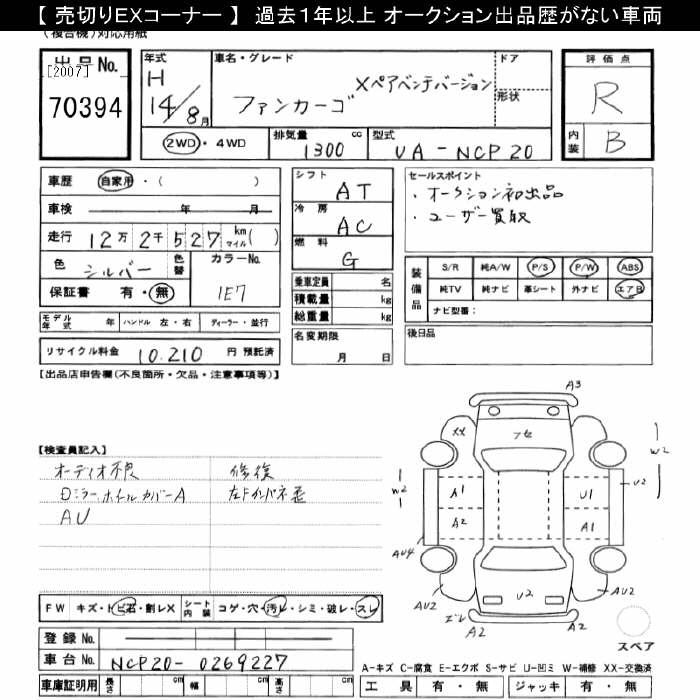 【 売切りEXコーナー 】 過去1年以上 オークション出品歴がない車両
(複合機)対応用紙
出品No.
[2007]
70394
年式
H
14/8月
車名・グレード
ファンカーゴ
Xペアベンチバージョン
ドア
形状
評価点
R
内装
B
2WD・4WD
排気量
1300
cc
型式
UA-NCP20
車歴
自家用・( )
車検
年 月
走行
12万2千527
km
マイル
( )
色
シルバー
色替
カラーNo.
1E7
保証書
有・無
シフト
AT
冷房
AC
燃料
G
乗車定員
名
積載量
kg
総重量
kg
名変期限
月 日
セールスポイント
・オークション初出品
・ユーザー買取
装備品
S/R 純A/W P/S P/W ABS
純TV 純ナビ 革シート 外ナビ エアB
ナビ型番：
モデル年式
年
ハンドル 左・右
ディーラー・並行
後日品
リサイクル料金
10,210
円 預託済
【出品店申告欄(不良箇所・欠品・注意事項等)】
【検査員記入】
オーディオ不良
修復
Dミラー ホイルカバーA
左Fインパネ歪
AU
A3
XX
フセ
W2
W2
A1
U1
U2
A2
A1
AU4
AU2
AU2
U2
エレ
A2
A2
スペア
FW
キズ・トビ石・割レX
シート内装
コゲ・穴・汚レ・シミ・破レ・スレ
登録No.
車台No.
NCP20-0269227
A-キズ C-腐食 E-エクボ S-サビ U-凹ミ W-補修 XX-交換済
車庫証明用
長さ
cm
幅
cm
高さ
cm
工具
有・無
ジャッキ
有・無